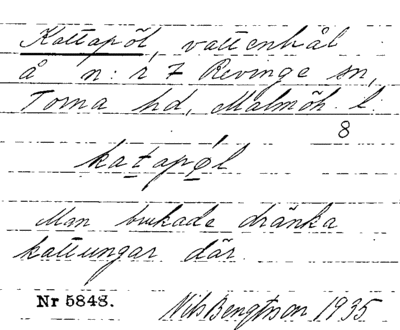 Kattapöl, vattenhål
å n:r 7 Revinge sn,
Torna hd, Malmöh. l.
8
katapöl
Man brukade dränka
kattungar där.
Nr 5848. Nils Bengtson 1935